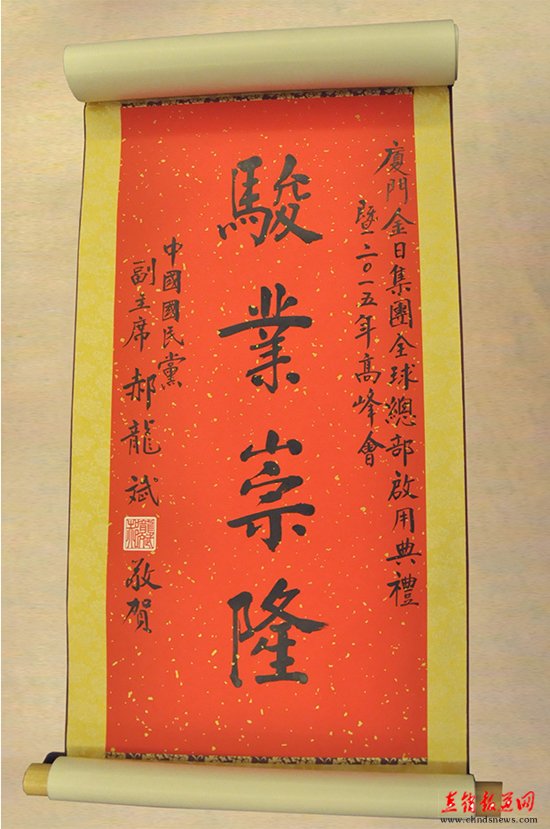 廈門金日集團全球總部啟用典禮
暨二〇一五年高峰會
駿業崇隆
中國國民黨
副主席 郝龍斌
敬賀
直销报道网
www.chndsnews.com